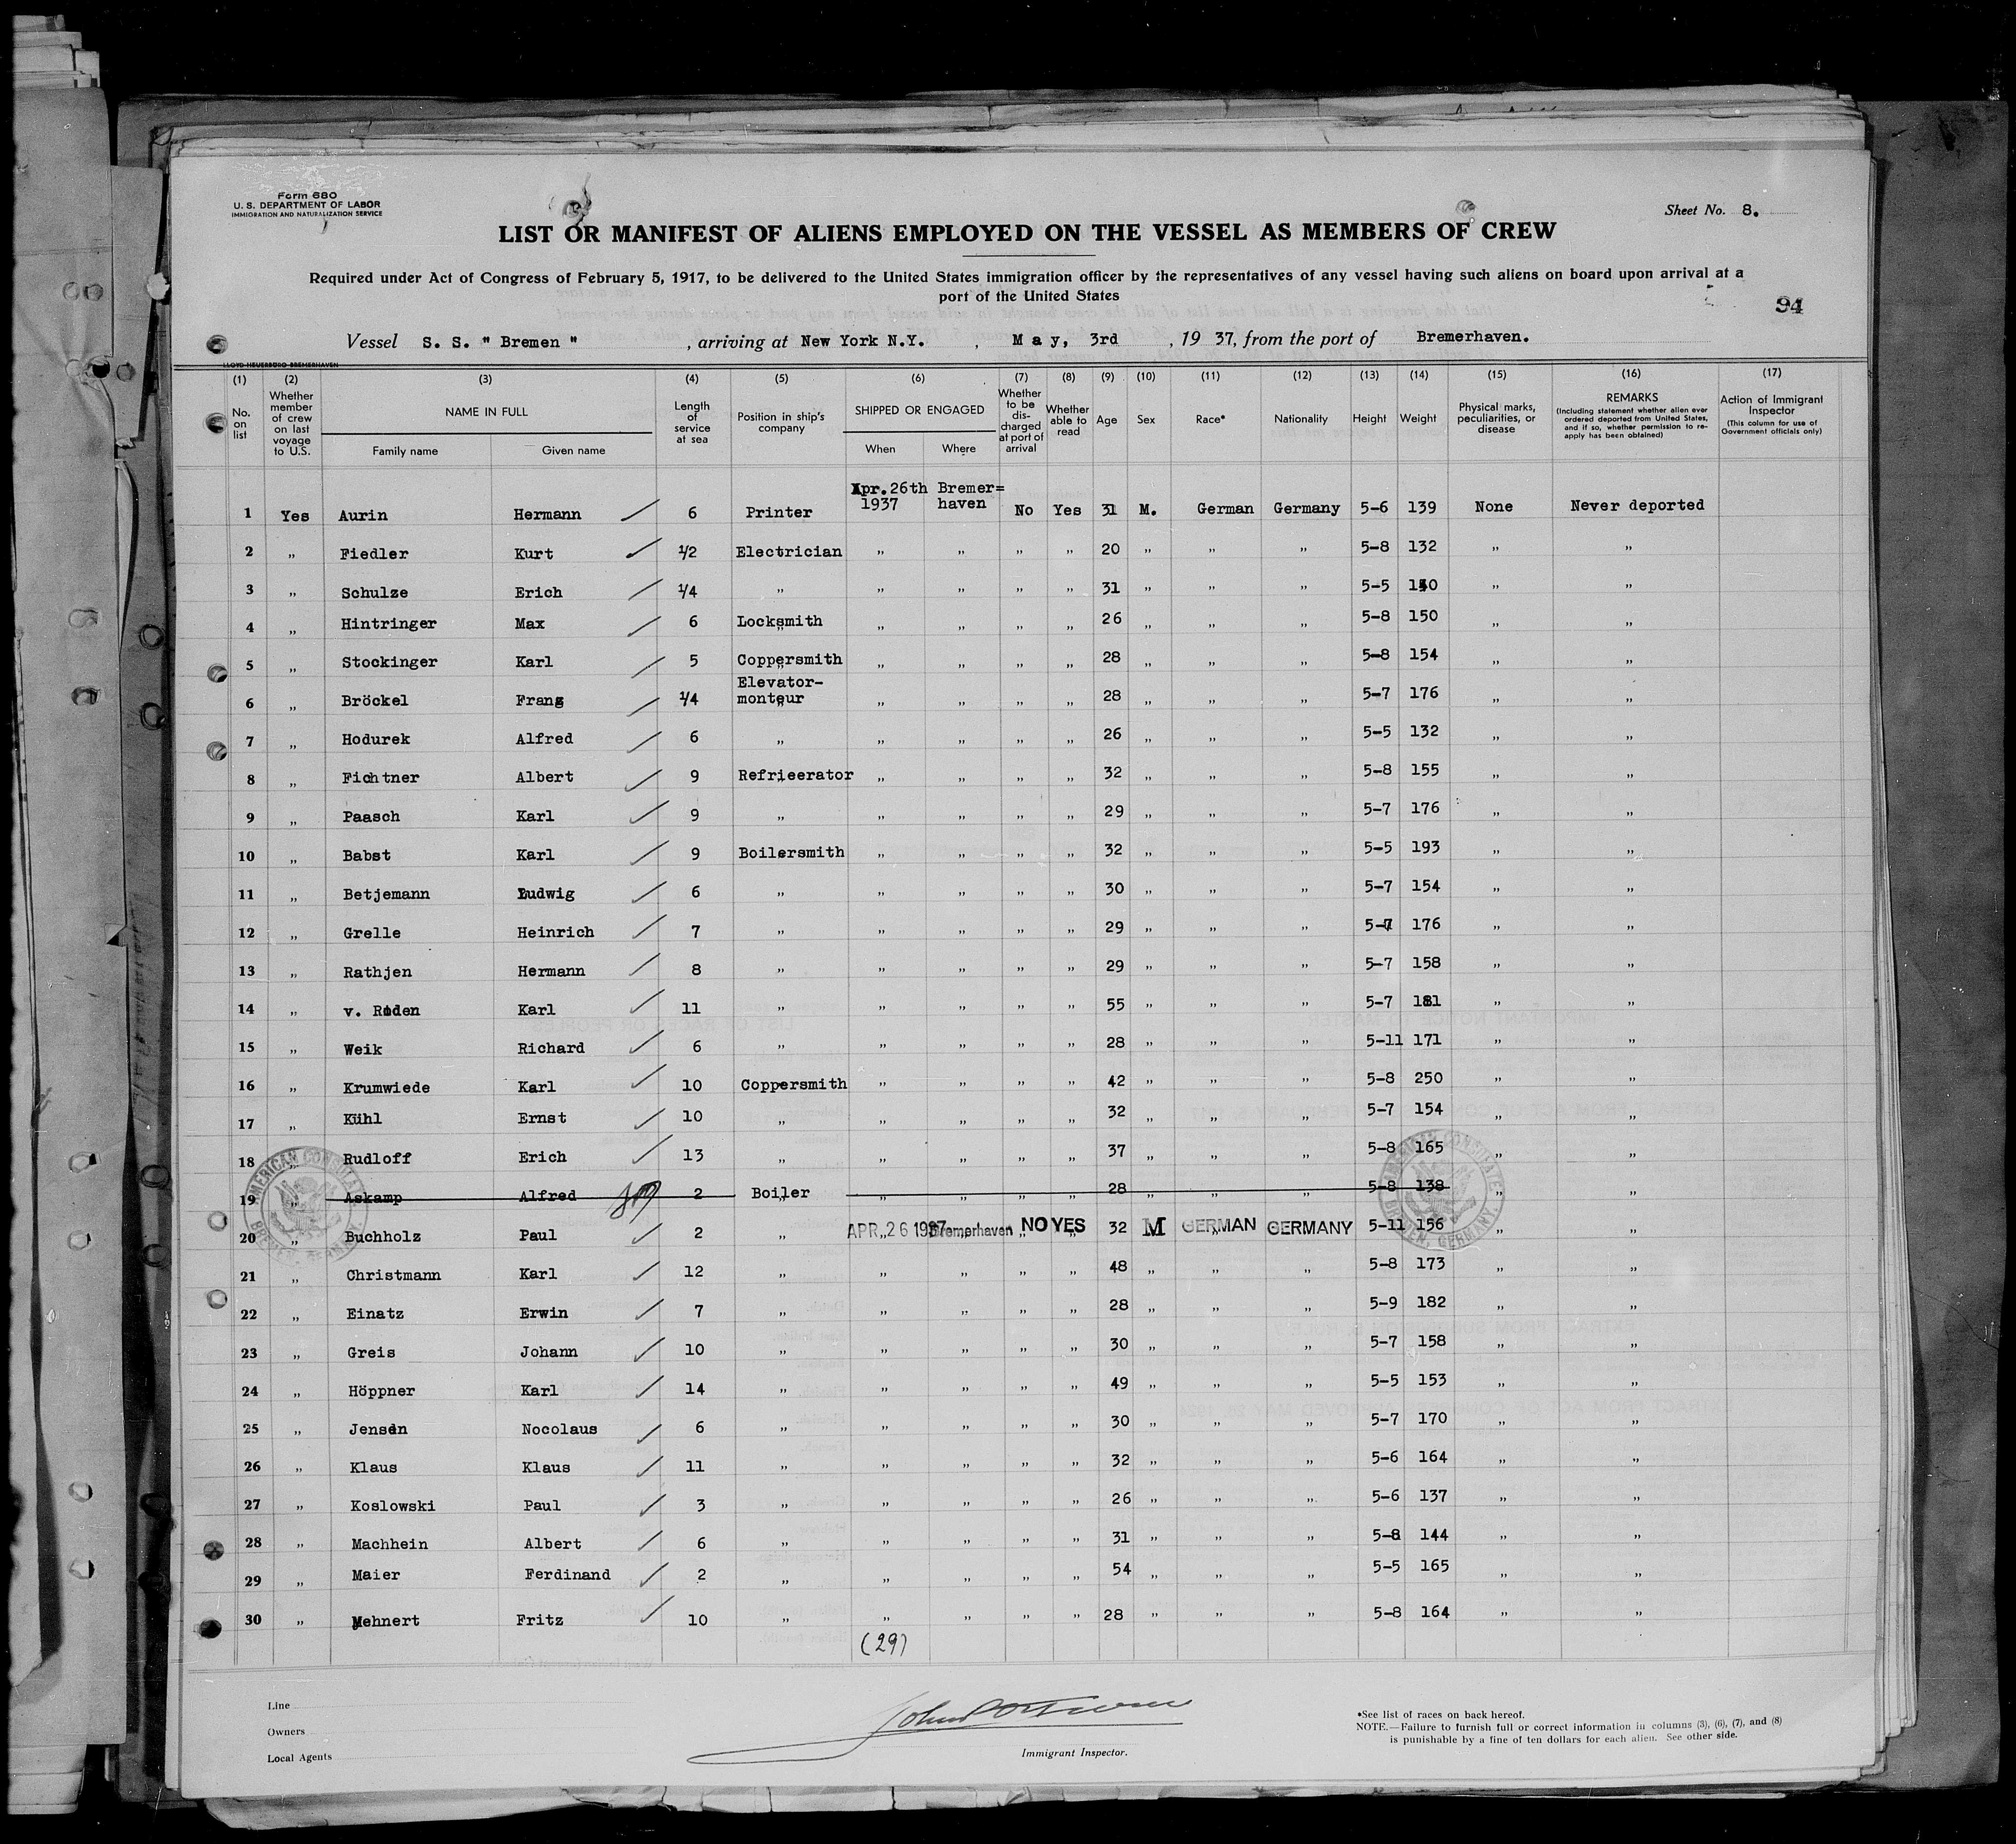 Form 680
U. S. DEPARTMENT OF LABOR
IMMIGRATION AND NATURALIZATION SERVICE
Sheet No. 8.
LIST OR MANIFEST OF ALIENS EMPLOYED ON THE VESSEL AS MEMBERS OF CREW
Required under Act of Congress of February 5, 1917, to be delivered to the United States immigration officer by the representatives of any vessel having such aliens on board upon arrival at a
port of the United States
94
Vessel S. S. " Bremen " , arriving at New York N.Y. , May, 3rd , 19 37, from the port of Bremerhaven.
LLOYD HEUERBÜRO BREMERHAVEN
(1) (2) (3) (4) (5) (6) (7) (8) (9) (10) (11) (12) (13) (14) (15) (16) (17)
No. on list Whether member of crew on last voyage to U.S. NAME IN FULL Family name Given name Length of service at sea Position in ship's company SHIPPED OR ENGAGED When Where Whether to be discharged at port of arrival Whether able to read Age Sex Race* Nationality Height Weight Physical marks, peculiarities, or disease REMARKS (Including statement whether alien ever ordered deported from United States, and if so, whether permission to re-apply has been obtained) Action of Immigrant Inspector (This column for use of Government officials only)
1 Yes Aurin Hermann 6 Printer Apr. 26th 1937 Bremer= haven No Yes 31 M. German Germany 5-6 139 None Never deported
2 " Fiedler Kurt 1/2 Electrician " " " " 20 " " " 5-8 132 " "
3 " Schulze Erich 1/4 " " " " " 31 " " " 5-5 140 " "
4 " Hintringer Max 6 Locksmith " " " " 26 " " " 5-8 150 " "
5 " Stockinger Karl 5 Coppersmith " " " " 28 " " " 5-8 154 " "
6 " Bröckel Frang 1/4 Elevator- monteur " " " " 28 " " " 5-7 176 " "
7 " Hodurek Alfred 6 " " " " " 26 " " " 5-5 132 " "
8 " Fichtner Albert 9 Refrieerator " " " " 32 " " " 5-8 155 " "
9 " Paasch Karl 9 " " " " " 29 " " " 5-7 176 " "
10 " Babst Karl 9 Boilersmith " " " " 32 " " " 5-5 193 " "
11 " Betjemann Ludwig 6 " " " " " 30 " " " 5-7 154 " "
12 " Grelle Heinrich 7 " " " " " 29 " " " 5-7 176 " "
13 " Rathjen Hermann 8 " " " " " 29 " " " 5-7 158 " "
14 " v. Roden Karl 11 " " " " " 55 " " " 5-7 181 " "
15 " Weik Richard 6 " " " " " 28 " " " 5-11 171 " "
16 " Krumwiede Karl 10 Coppersmith " " " " 42 " " " 5-8 250 " "
17 " Kühl Ernst 10 " " " " " 32 " " " 5-7 154 " "
18 " Rudloff Erich 13 " " " " " 37 " " " 5-8 165 " "
19 " Askamp Alfred 2 Boiler " " " " 28 " " " 5-8 138 " "
20 " Buchholz Paul 2 " APR 26 1937 Bremerhaven NO YES 32 M GERMAN GERMANY 5-11 156 " "
21 " Christmann Karl 12 " " " " " 48 " " " 5-8 173 " "
22 " Einatz Erwin 7 " " " " " 28 " " " 5-9 182 " "
23 " Greis Johann 10 " " " " " 30 " " " 5-7 158 " "
24 " Höppner Karl 14 " " " " " 49 " " " 5-5 153 " "
25 " Jensen Nocolaus 6 " " " " " 30 " " " 5-7 170 " "
26 " Klaus Klaus 11 " " " " " 32 " " " 5-6 164 " "
27 " Koslowski Paul 3 " " " " " 26 " " " 5-6 137 " "
28 " Machhein Albert 6 " " " " " 31 " " " 5-8 144 " "
29 " Maier Ferdinand 2 " " " " " 54 " " " 5-5 165 " "
30 " Mehnert Fritz 10 " " " " " 28 " " " 5-8 164 " "
(29)
AMERICAN CONSULATE BREMEN, GERMANY.
AMERICAN CONSULATE BREMEN, GERMANY.
Line
Owners
Local Agents
Immigrant Inspector.
*See list of races on back hereof.
NOTE.—Failure to furnish full or correct information in columns (3), (6), (7), and (8)
is punishable by a fine of ten dollars for each alien. See other side.